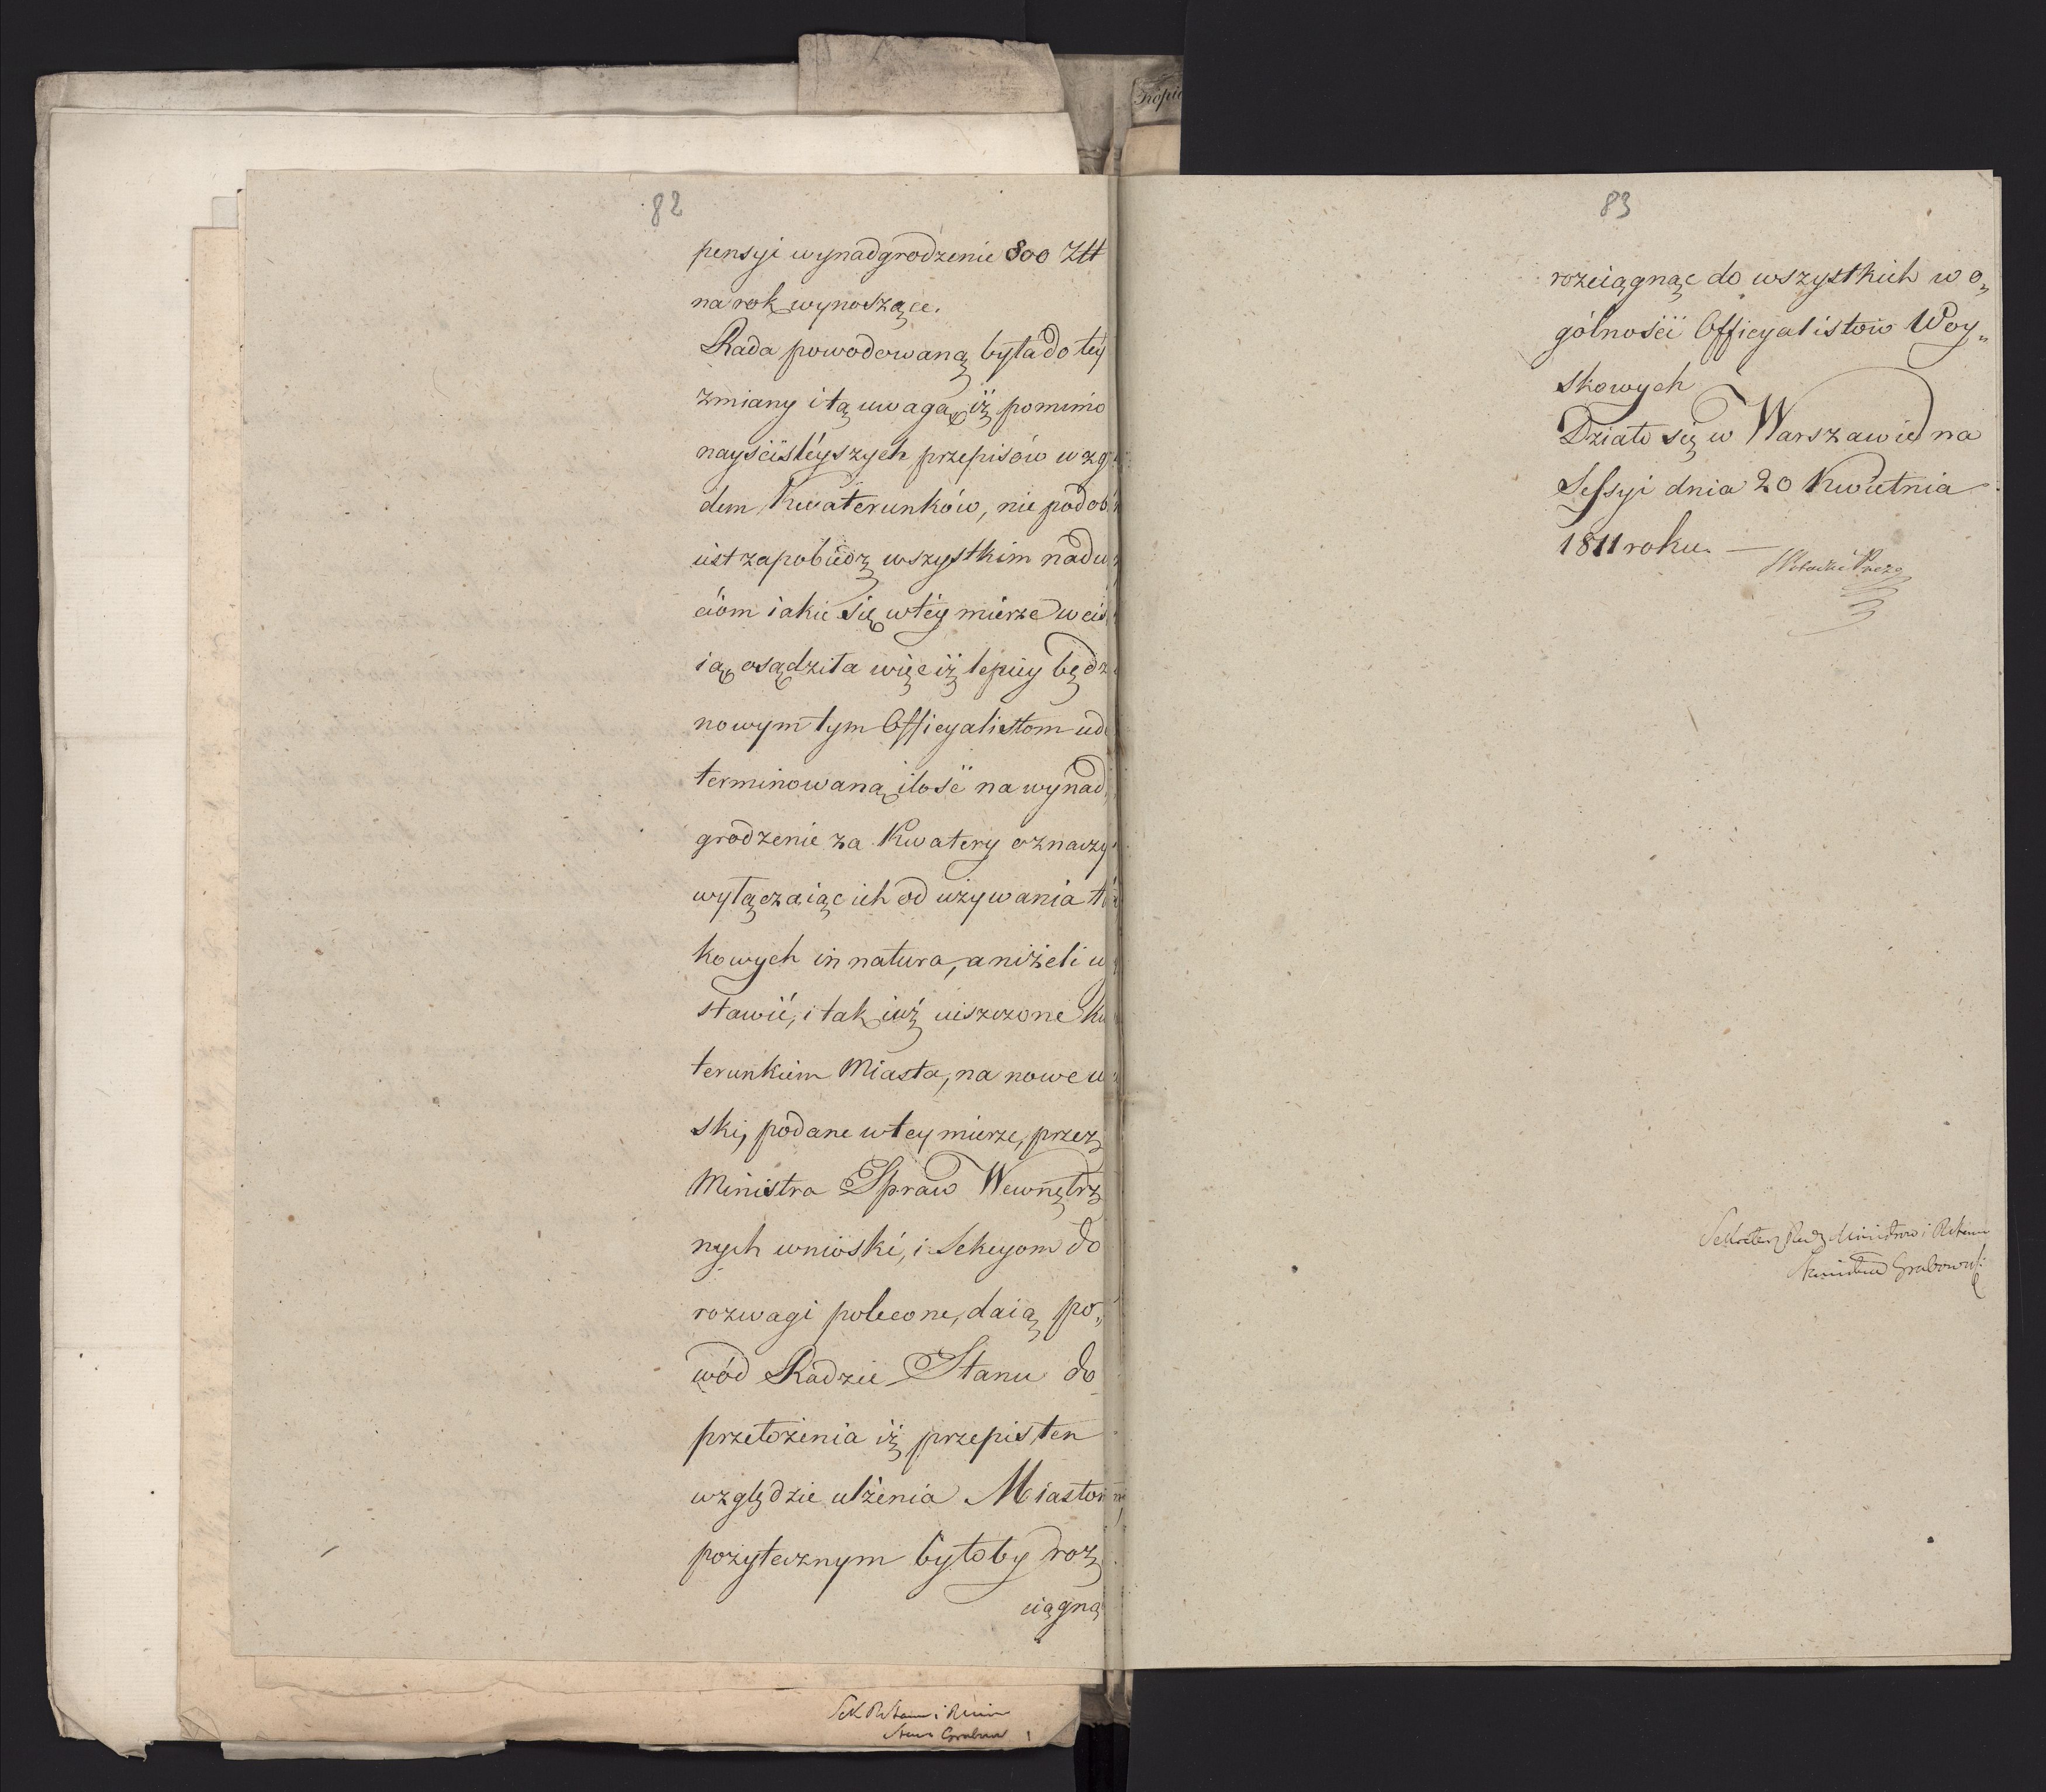 82
pensyi wynadgrodzenie 800 Złł
na rok wynoszące.
Rada powodowaną była do téy
zmiany i tą uwagą iż pomimo
nayściśléyszych przepisów wzg
dem Kwaterunków, nie podob
iest zapobiedz wszystkim naduż
ciom iakie się w téy mierze wcis
ią, osądziła więc iż lepiey będz
nowym tym Officyalistom ude
terminowaną ilość na wynad
grodzenie za Kwatery oznaczy
wyłączaiąc ich od używania ta
kowych in natura, aniżeli wy
stawić, i tak iuż uiszczone Kw
terunkiem Miasta, na nowe uci
ski, podane w tey mierze, przez
Ministra Spraw Wewnętrz
nych wnioski, i Sekcyom do
rozwagi polecone, daią po„
wód Radzie Stanu do
przełożenia iż przepis ten
względzie ulżenia Miastom,
pożytecznym byłoby roz
ciągną
Sek
83
rozciągnąc do wszystkich w o„
gólności Officyalistów Woy„
skowych
Działo się w Warszawie na
Sessyi dnia 20 Kwietnia
1811 roku. —
Potocki Prezes
Sekretarz Rady Ministrów i Rstanu
Grabowski
Tropi